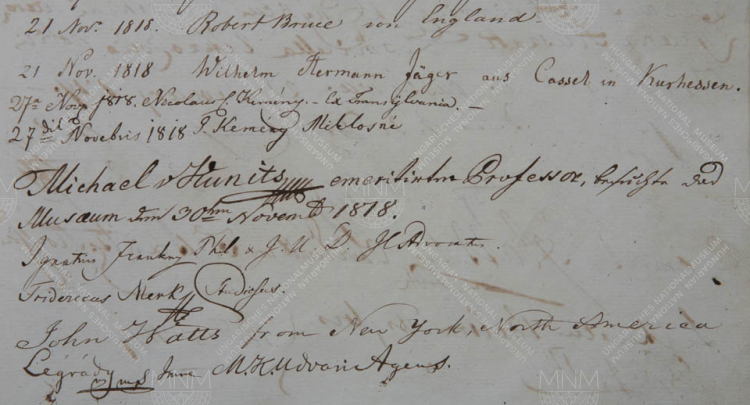 21 Nov. 1818. Robert Bruce von England.
21 Nov. 1818 Wilhelm Hermann Jäger aus Cassel in Kurhessen.
27a Nov. 1818. Nicolaus C. Kemény. - Ex Transylvania. -
27dik Novebris 1818 Kemény Miklosné
Michael v Kunits emeritirter Professor, besuchte das
Musaeum den 30ten Novemb 1818.
Ignatius Phil & J. U. D. Advocat.
Fridericus Merk, Studiosus.
John Watts from New York, North America
Légrády mp Imre M. K. Udvari Agens.
MNM
HUNGARIAN NATIONAL MUSEUM